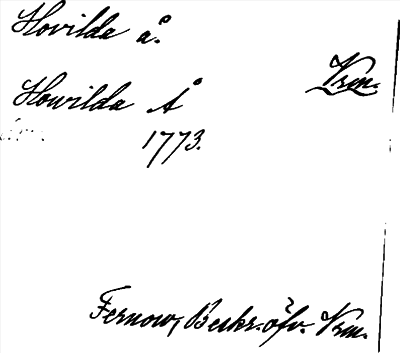 Hovilda å.
Vrm.
Howilda Å
1773.
Fernow, Beskr. öfv. Vrm.